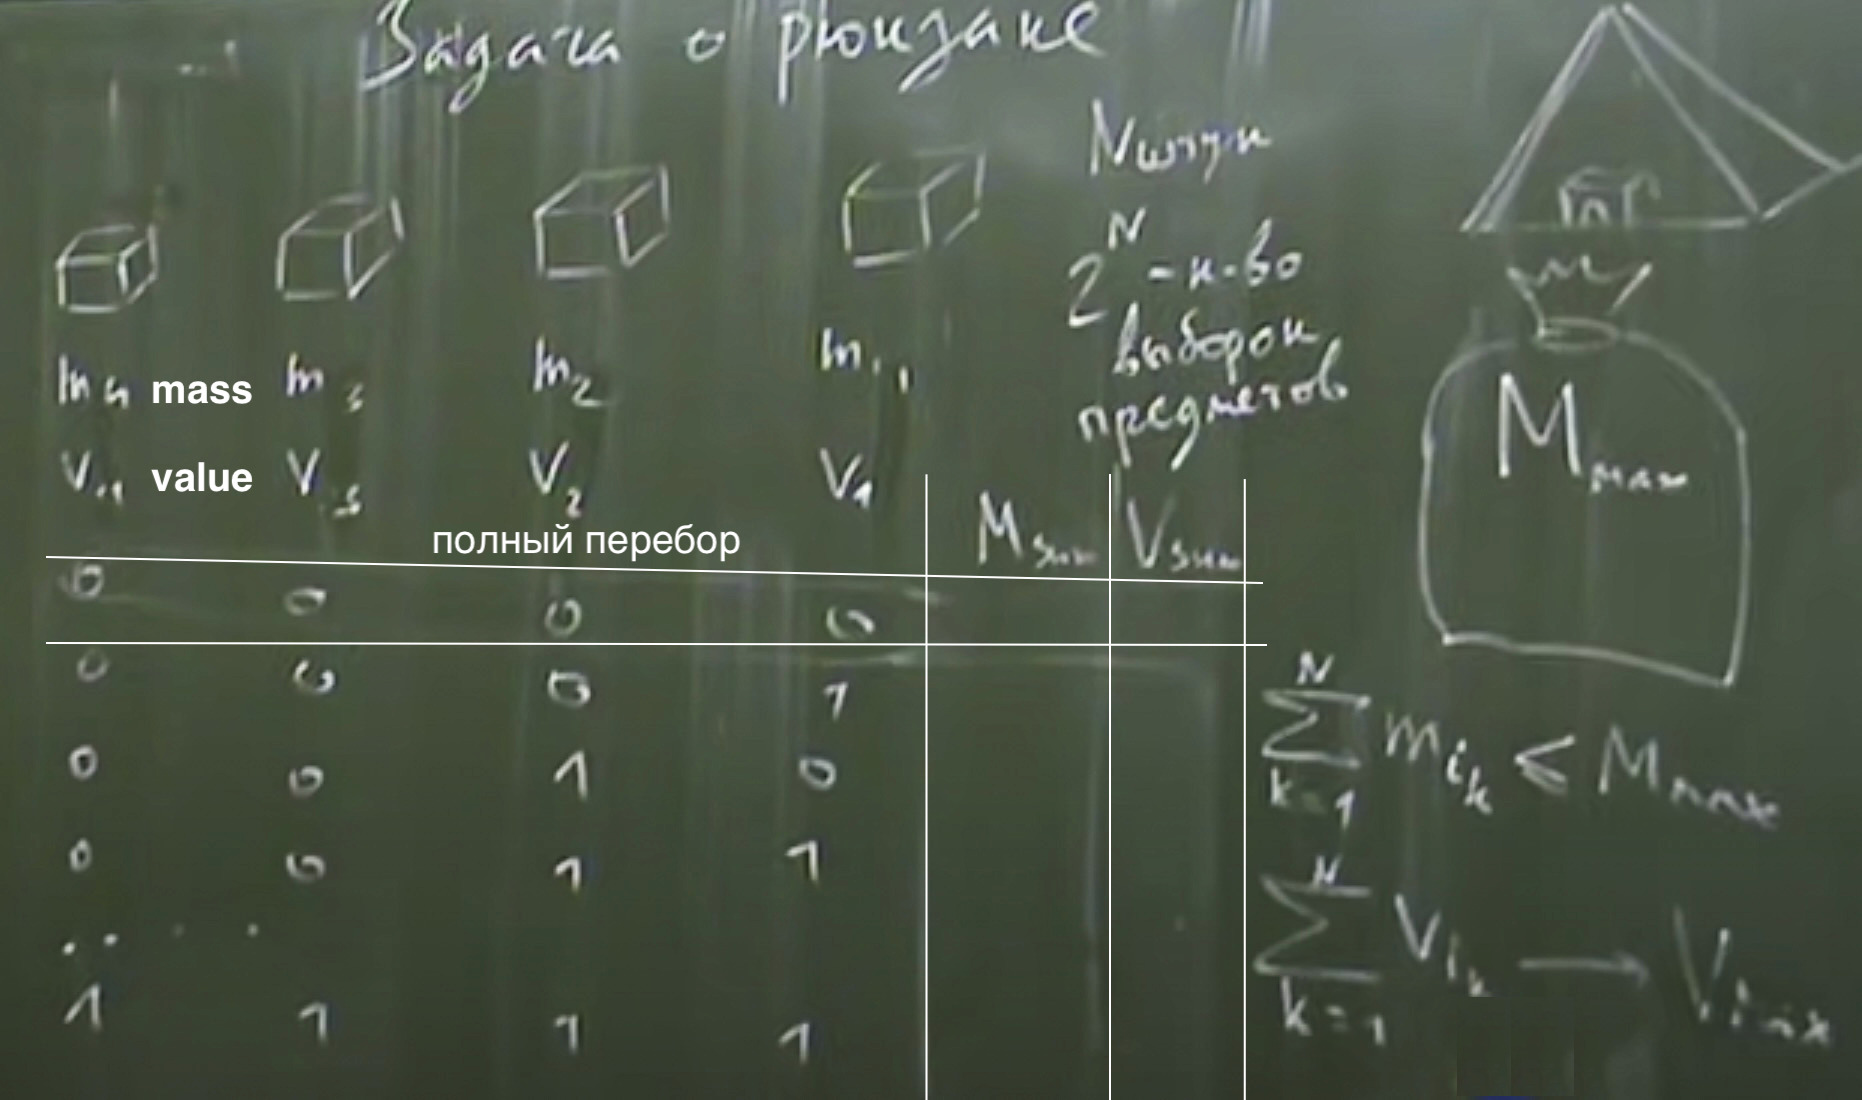 Задача о рюкзаке
N штук
2^N - к-во
выборок
предметов
m₄ mass m₃ m₂ m₁
V₄ value V₃ V₂ V₁
M max
полный перебор
M sum V sum
0 0 0 0
0 0 0 1
0 0 1 0
0 0 1 1
. . . .
1 1 1 1
N
∑ m_{i_k} ≤ M max
k=1
N
∑ V_{i_k} → V max
k=1